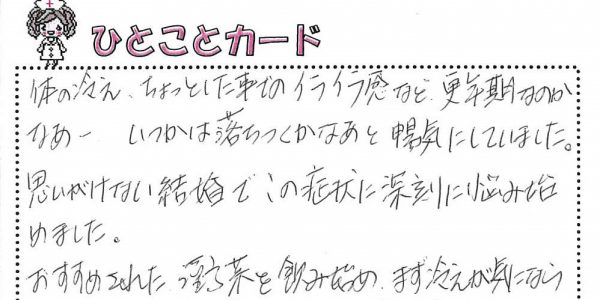 ひとことカード
体の冷え、ちょっとした事でのイライラ感など、更年期なのか
なあー いつかは落ちつくかなあと暢気にしていました。
思いがけない結婚でこの症状に深刻に悩み始
めました。
おすすめされた 茶を飲み始め、まず冷えが気になら